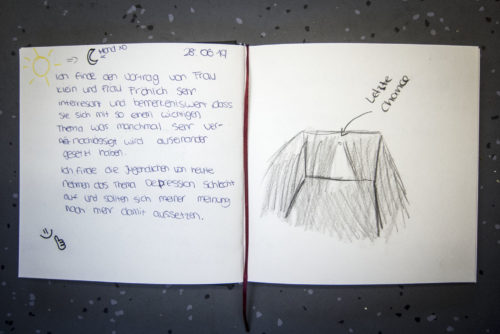 ⇒ Mond xD 28.06.19
Ich finde den Vortrag von Frau
Klein und Frau Fröhlich sehr
interessant und bemerkenswert dass
sie sich mit so einem wichtigen
Thema was manchmal sehr ver-
nachlässigt wird auseinander
gesetzt haben.
Ich finde die Jugendlichen von heute
nehmen das Thema Depression schlecht
auf und sollten sich meiner meinung
nach mehr damit aussetzen.
Letzte
Chance